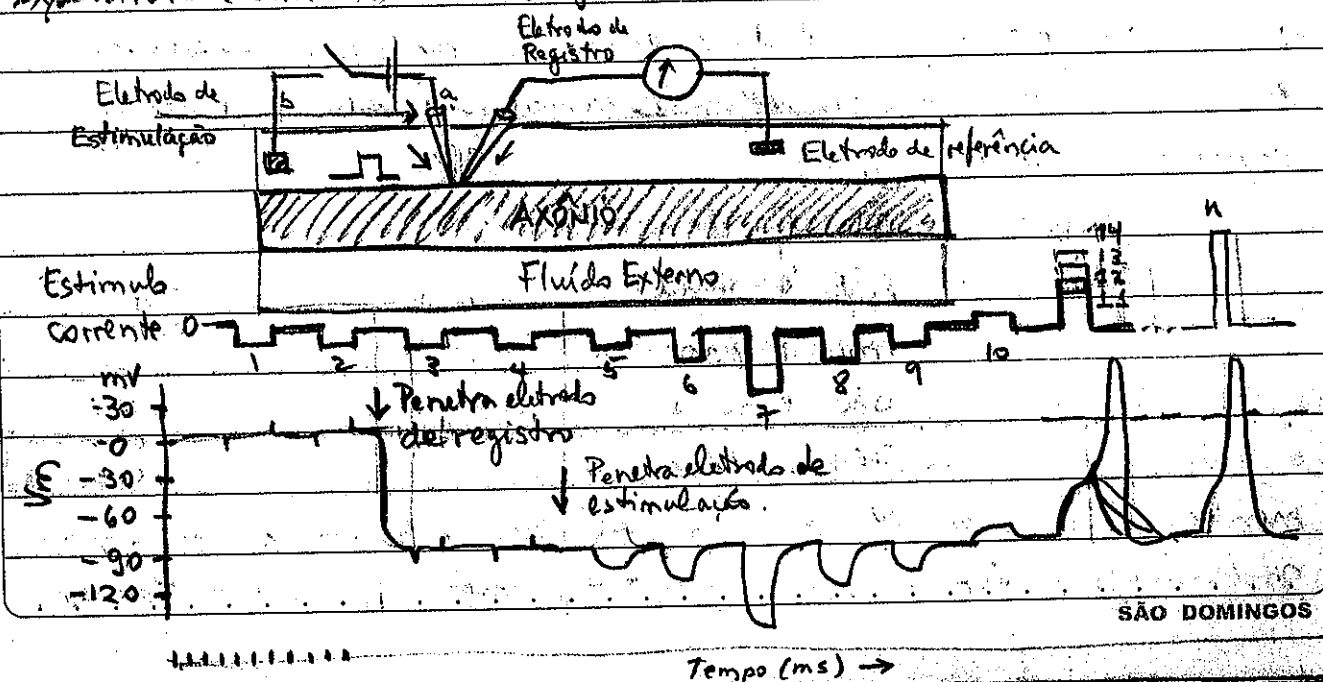 Eletrodo de
Registro
Eletrodo de
Estimulação
b
a
Eletrodo de referência
AXÔNIO
Fluído Externo
n
Estimulo
corrente 0
1 2 3 4 5 6 7 8 9 10
mV
-30
-0
-30
-60
-90
-120
Vm
Penetra eletrodo
de registro
Penetra eletrodo de
estimulação.
SÃO DOMINGOS
Tempo (ms) →